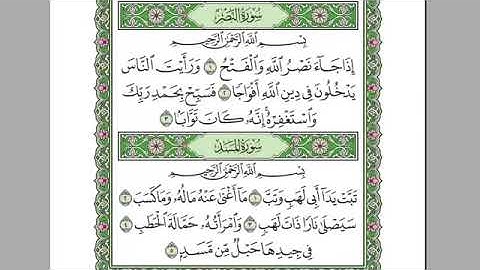 سُورَةُ النَّصْرِ
بِسْمِ اللَّهِ الرَّحْمَٰنِ الرَّحِيمِ
إِذَا جَاءَ نَصْرُ اللَّهِ وَالْفَتْحُ ١ وَرَأَيْتَ النَّاسَ
يَدْخُلُونَ فِي دِينِ اللَّهِ أَفْوَاجًا ٢ فَسَبِّحْ بِحَمْدِ رَبِّكَ
وَاسْتَغْفِرْهُ إِنَّهُ كَانَ تَوَّابًا ٣
سُورَةُ الْمَسَدِ
بِسْمِ اللَّهِ الرَّحْمَٰنِ الرَّحِيمِ
تَبَّتْ يَدَا أَبِي لَهَبٍ وَتَبَّ ١ مَا أَغْنَىٰ عَنْهُ مَالُهُ وَمَا كَسَبَ ٢
سَيَصْلَىٰ نَارًا ذَاتَ لَهَبٍ ٣ وَامْرَأَتُهُ حَمَّالَةَ الْحَطَبِ ٤
فِي جِيدِهَا حَبْلٌ مِّن مَّسَدٍ ٥